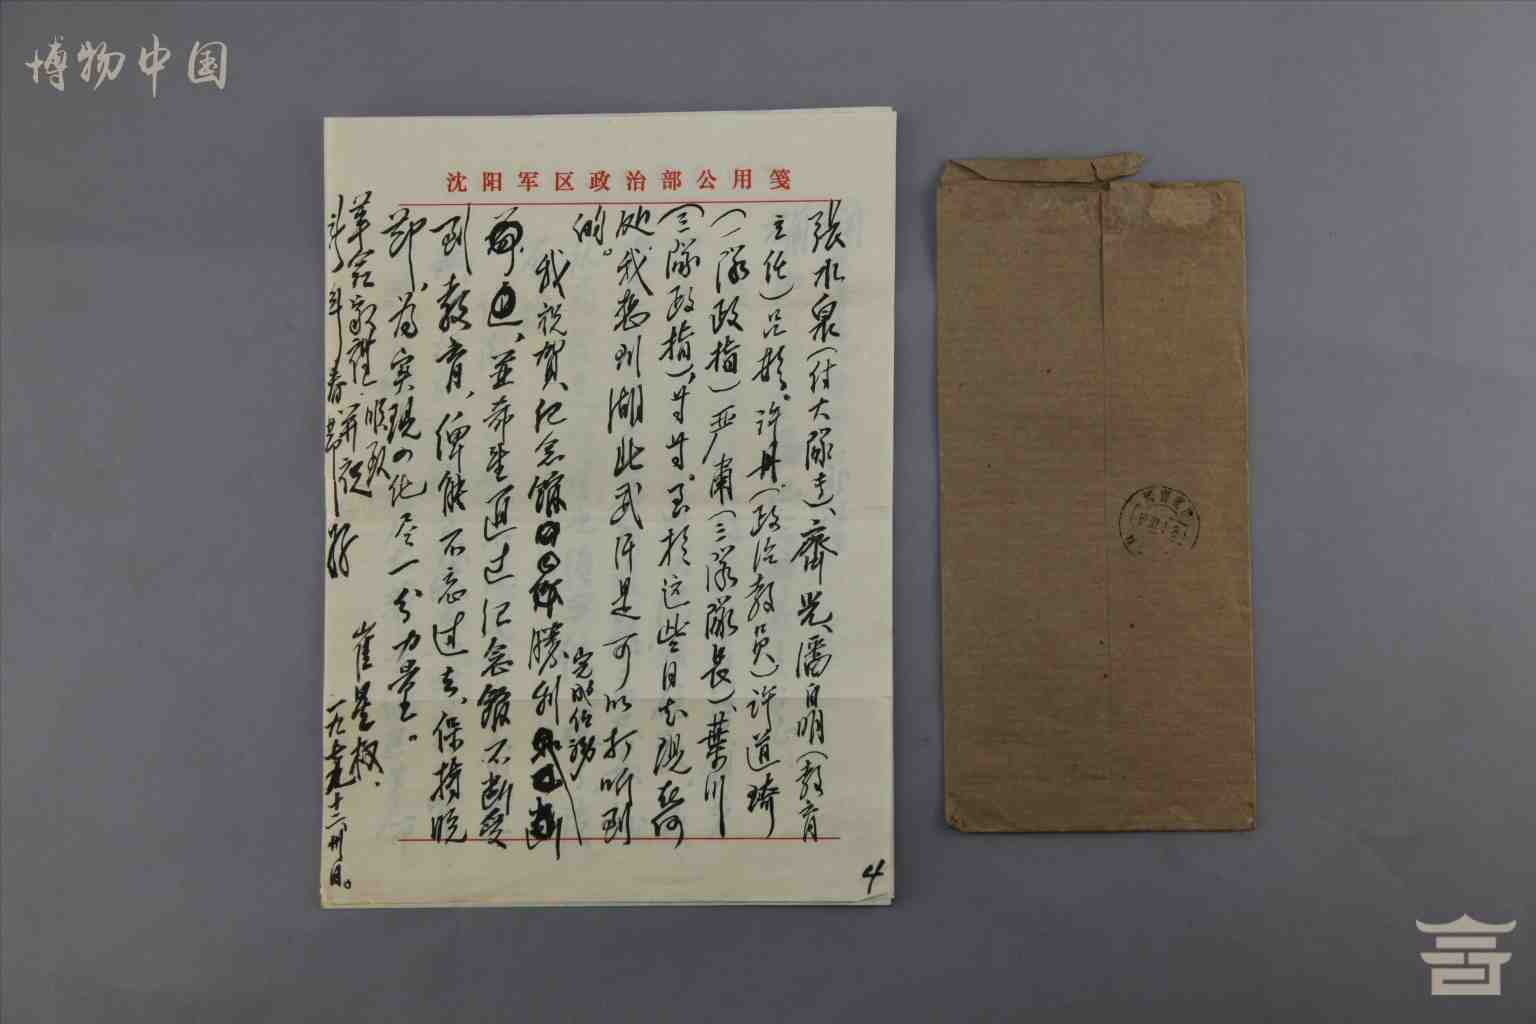 博物中国
沈阳军区政治部公用笺
张水泉（付大队长）、齐光、潘自明（教育
主任）吕彬。许丹（政治教员）许道琦
（一队政指）严肃（三队队长）、叶川
（三队政指），等等。至于这些同志现在何
处，我想到湖北武汉是可以打听到
的。
我祝贺、纪念馆 胜利
完成任务
并希望通过纪念馆不断受
到教育，俾能不忘过去，保持晚
节，为实现四化尽一分力量。
革命敬礼 顺致
并祝
春 好
崔星权
一九七九十二 日。
4